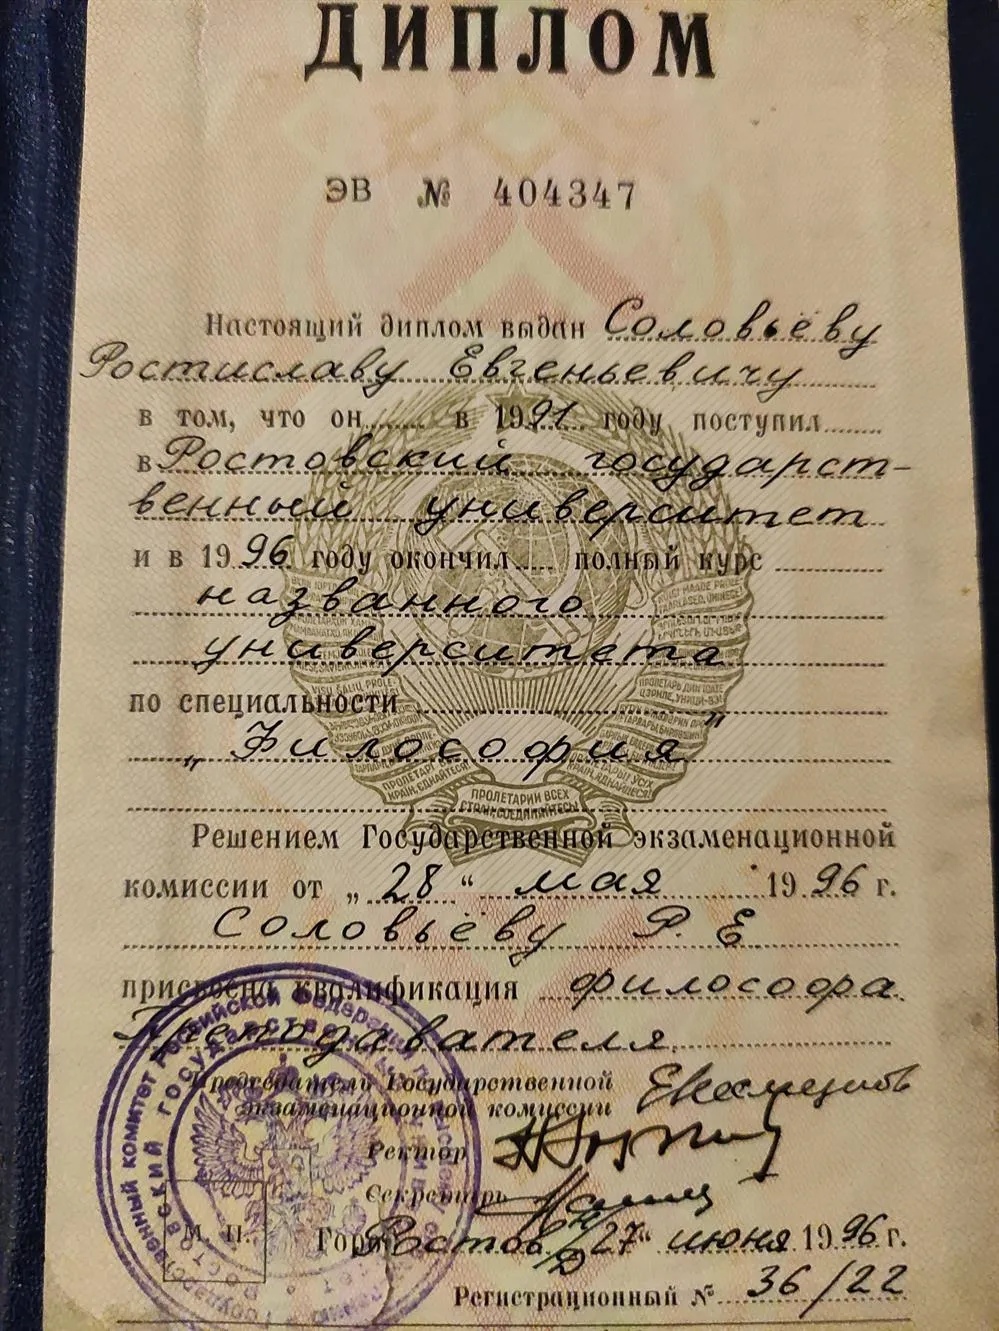 ДИПЛОМ
ЭВ № 404347
Настоящий диплом выдан Соловьёву
Ростиславу Евгеньевичу
в том, что он в 1991 году поступил
в Ростовский государст-
венный университет
и в 1996 году окончил полный курс
названного
университета
по специальности
„Философия”
ПРОЛЕТАРИИ ВСЕХ
СТРАН, СОЕДИНЯЙТЕСЬ!
Решением Государственной экзаменационной
комиссии от „28“ мая 1996 г.
Соловьёву Р. Е
присвоена квалификация философа.
Преподавателя.
Председатель Государственной
экзаменационной комиссии
Ректор
Секретарь
М. П. Город Ростов н/Д „27“ июня 1996 г.
Регистрационный № 36/22